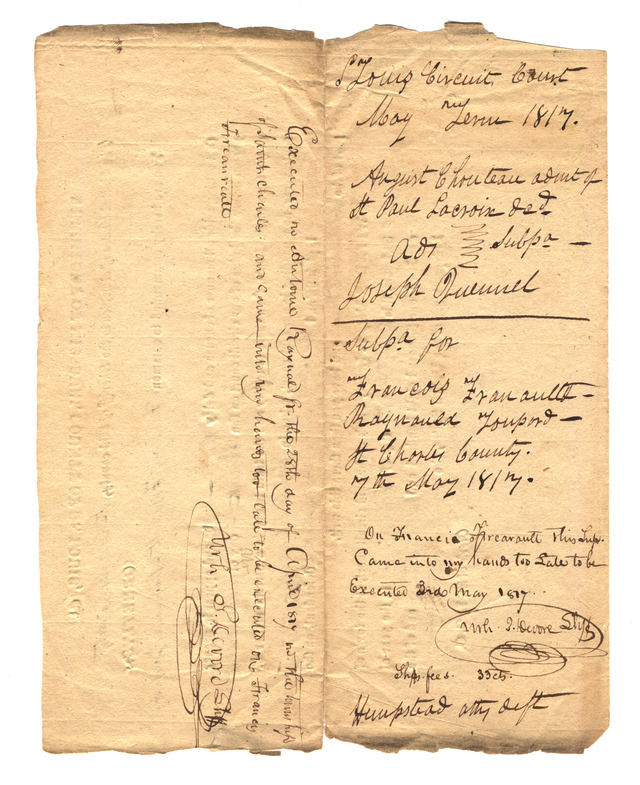 St Louis Circuit Court
May Term 1817.
August Chouteau admr of
St Paul Lacroix decd.
ads Subpa —
Joseph Quennel
Subpa for
Francois
St Charles County.
7th May 1817.
On Francis this Sup.
Came into my hands too Late to be
Executed 3rd May 1817.
Shff
Shfs fees. 33 cts.
Hempstead atty deft
Executed on Antoine Raynal Jr. the 28th day of April 1817 in the township
of Saint Charles. and Came into my hands too Late to be executed on Francis
Shff